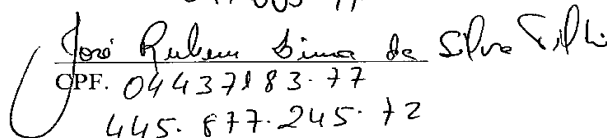 José Rubem Lima da Silva Filho
CPF. 04437183-77
445.877.245-72